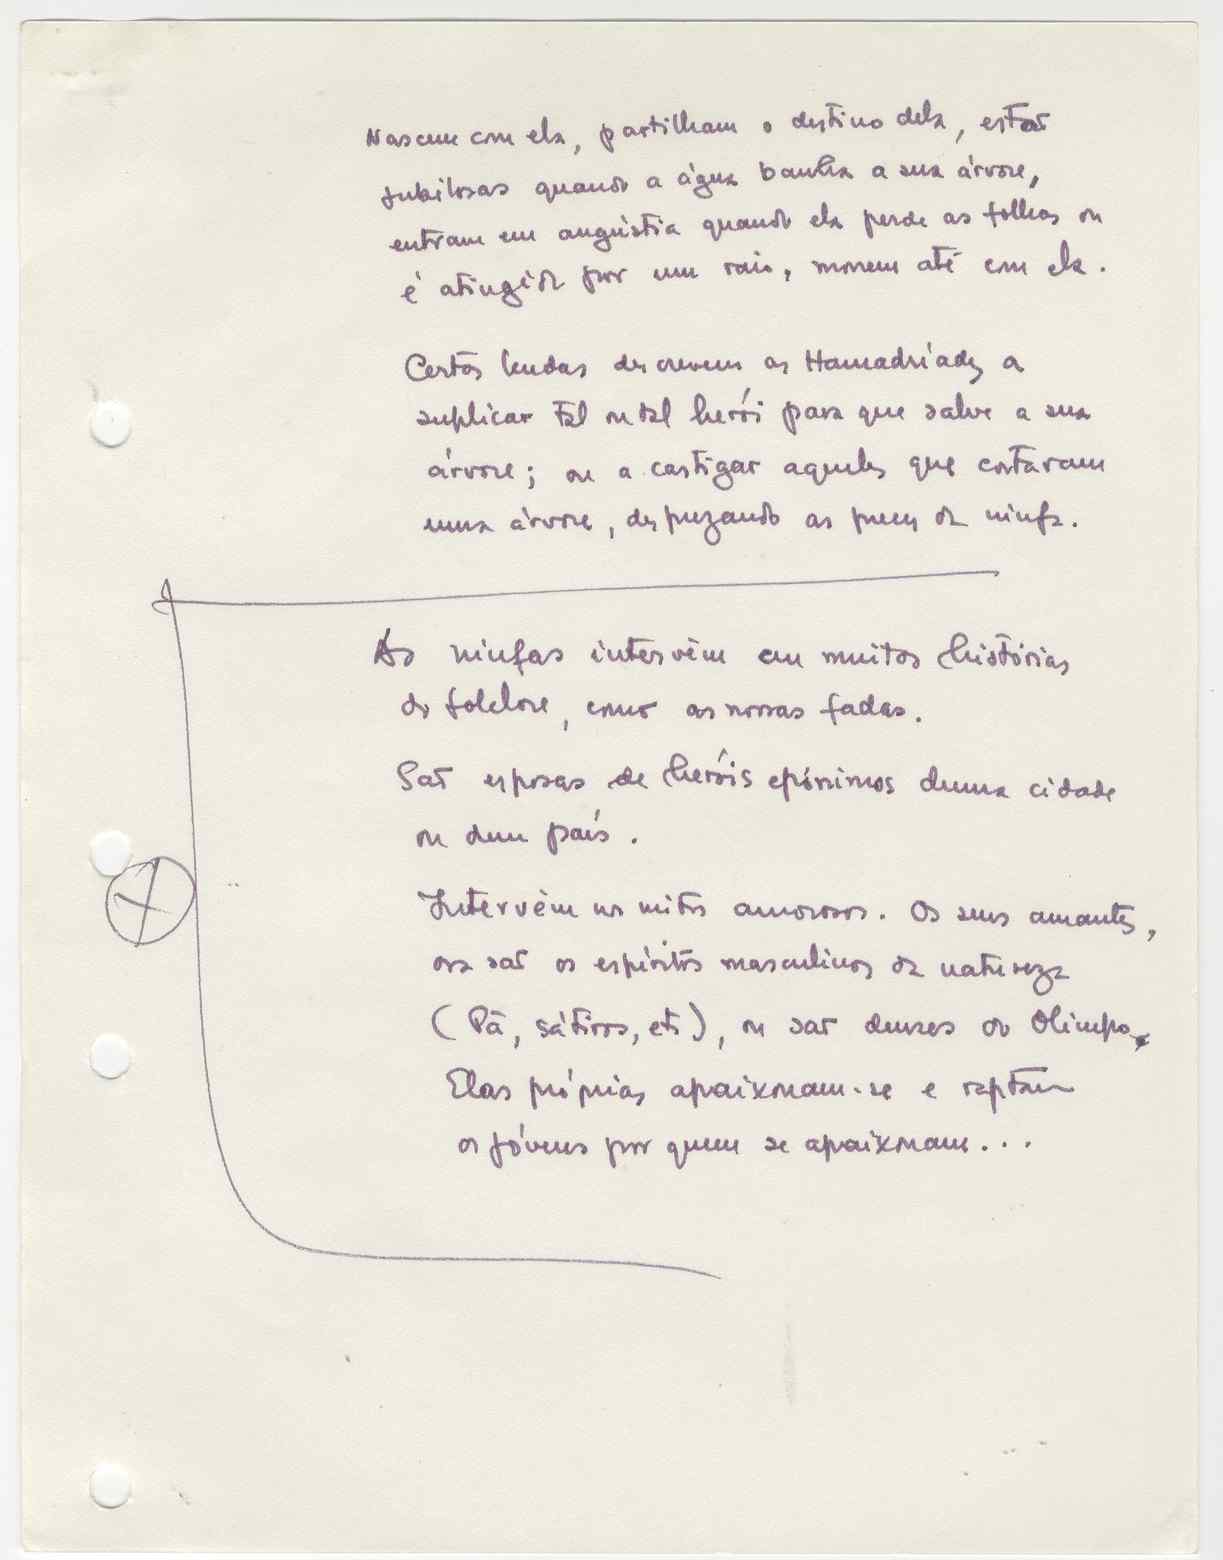 Nascem com ela, partilham o destino dela, estão
jubilosas quando a água banha a sua árvore,
entram em angústia quando ela perde as folhas ou
é atingida por um raio, morrem até com ela.
Certas lendas descrevem as Hamadríades a
suplicar tal ou tal herói para que salve a sua
árvore; ou a castigar aqueles que cortaram
uma árvore, desprezando as preces da ninfa.
As ninfas intervêm em muitas histórias
do folclore, como as nossas fadas.
São esposas de heróis epónimos duma cidade
ou dum país.
Intervêm nos mitos amorosos. Os seus amantes,
ora são os espíritos masculinos da natureza
(Pã, sátiros, etc), ou são deuses do Olimpo.
Elas próprias apaixonam-se e raptam
os jóvens por quem se apaixonam...